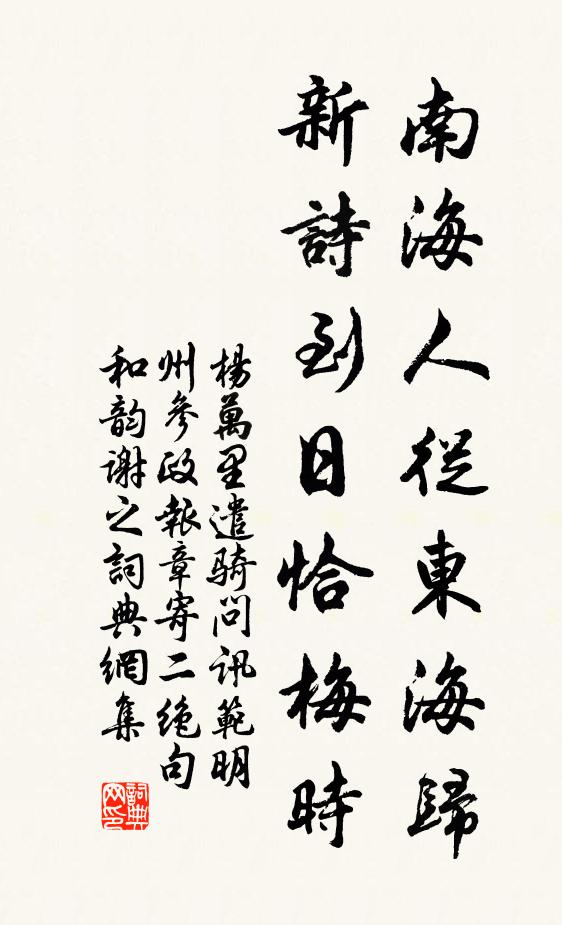 南海人從東海歸
新詩到日恰梅時
楊萬里遣騎問訊範明
州參政報章寄二絕句
和韵謝之詞典網集
詞典
网印